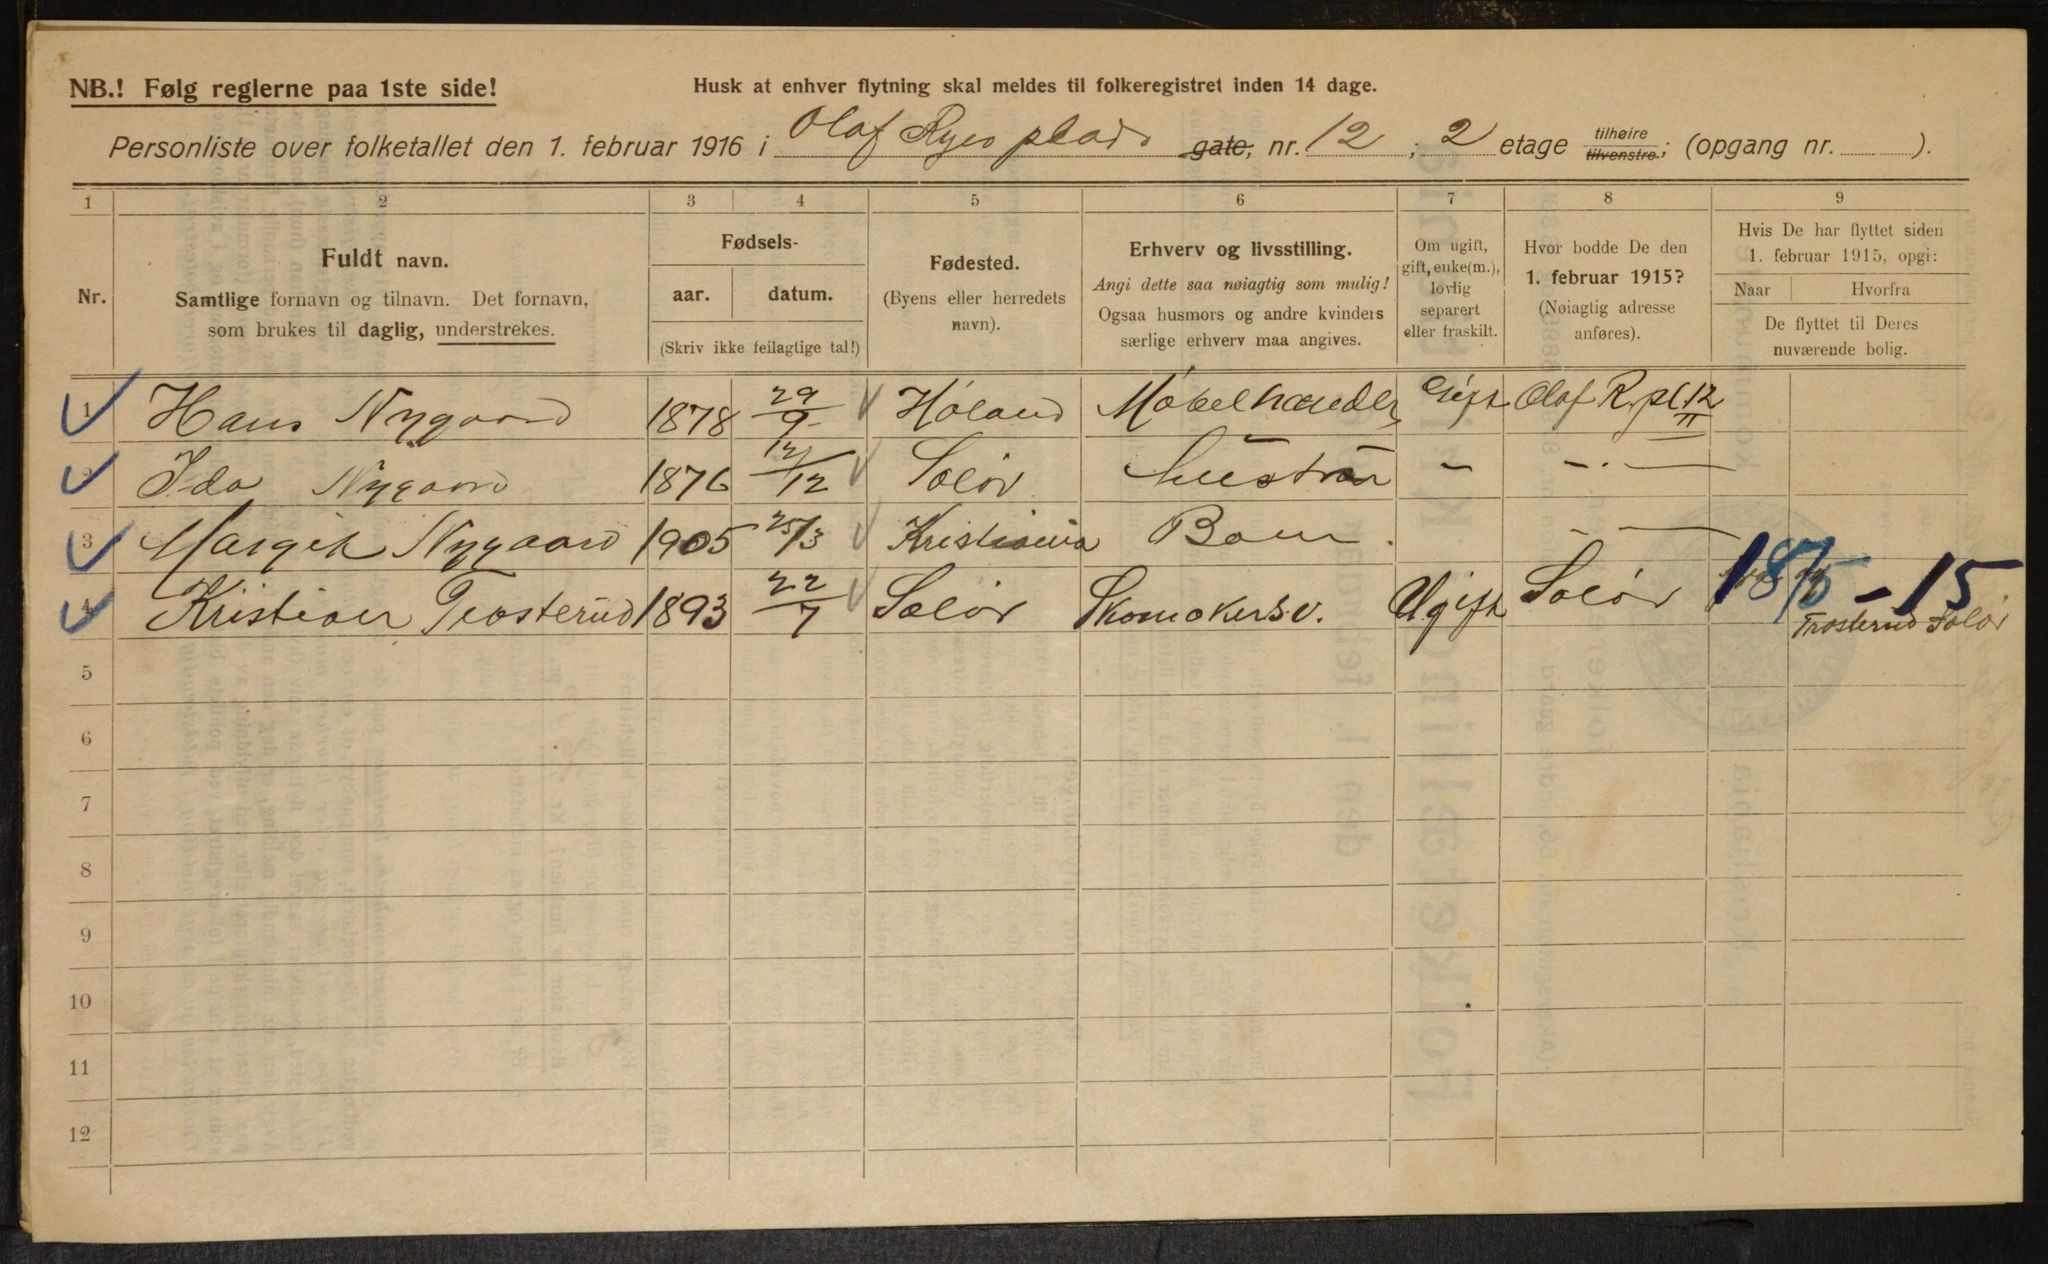 NB.! Følg reglerne paa 1ste side!
Husk at enhver flytning skal meldes til folkeregistret inden 14 dage.
Personliste over folketallet den 1. februar 1916 i Olaf Ryes plads gate, nr. 12 ; 2 etage tilhøire tilvenstre; (opgang nr. ).
1 2 3 4 5 6 7 8 9
Nr.
Fuldt navn.
Samtlige fornavn og tilnavn. Det fornavn,
som brukes til daglig, understrekes.
Fødsels-
aar. datum.
(Skriv ikke feilagtige tal!)
Fødested.
(Byens eller herredets
navn).
Erhverv og livsstilling.
Angi dette saa nøiagtig som mulig!
Ogsaa husmors og andre kvinders
særlige erhverv maa angives.
Om ugift,
gift, enke(m.),
lovlig
separert
eller fraskilt.
Hvor bodde De den
1. februar 1915?
(Nøiagtig adresse
anføres).
Hvis De har flyttet siden
1. februar 1915, opgi:
Naar Hvorfra
De flyttet til Deres
nuværende bolig.
1 Hans Nygaard 1878 29/9 Høland Møbelhandler Gift Olaf R. pl. 12 II
2 Ida Nygaard 1876 12/12 Solør Hustru - - . —
3 Margit Nygaard 1905 25/3 Kristiania Barn. - —
4 Kristian Trosterud 1893 22/7 Solør Skomakersv. Ugift Solør 18/5 - 15 Trosterud Solør
5
6
7
8
9
10
11
12